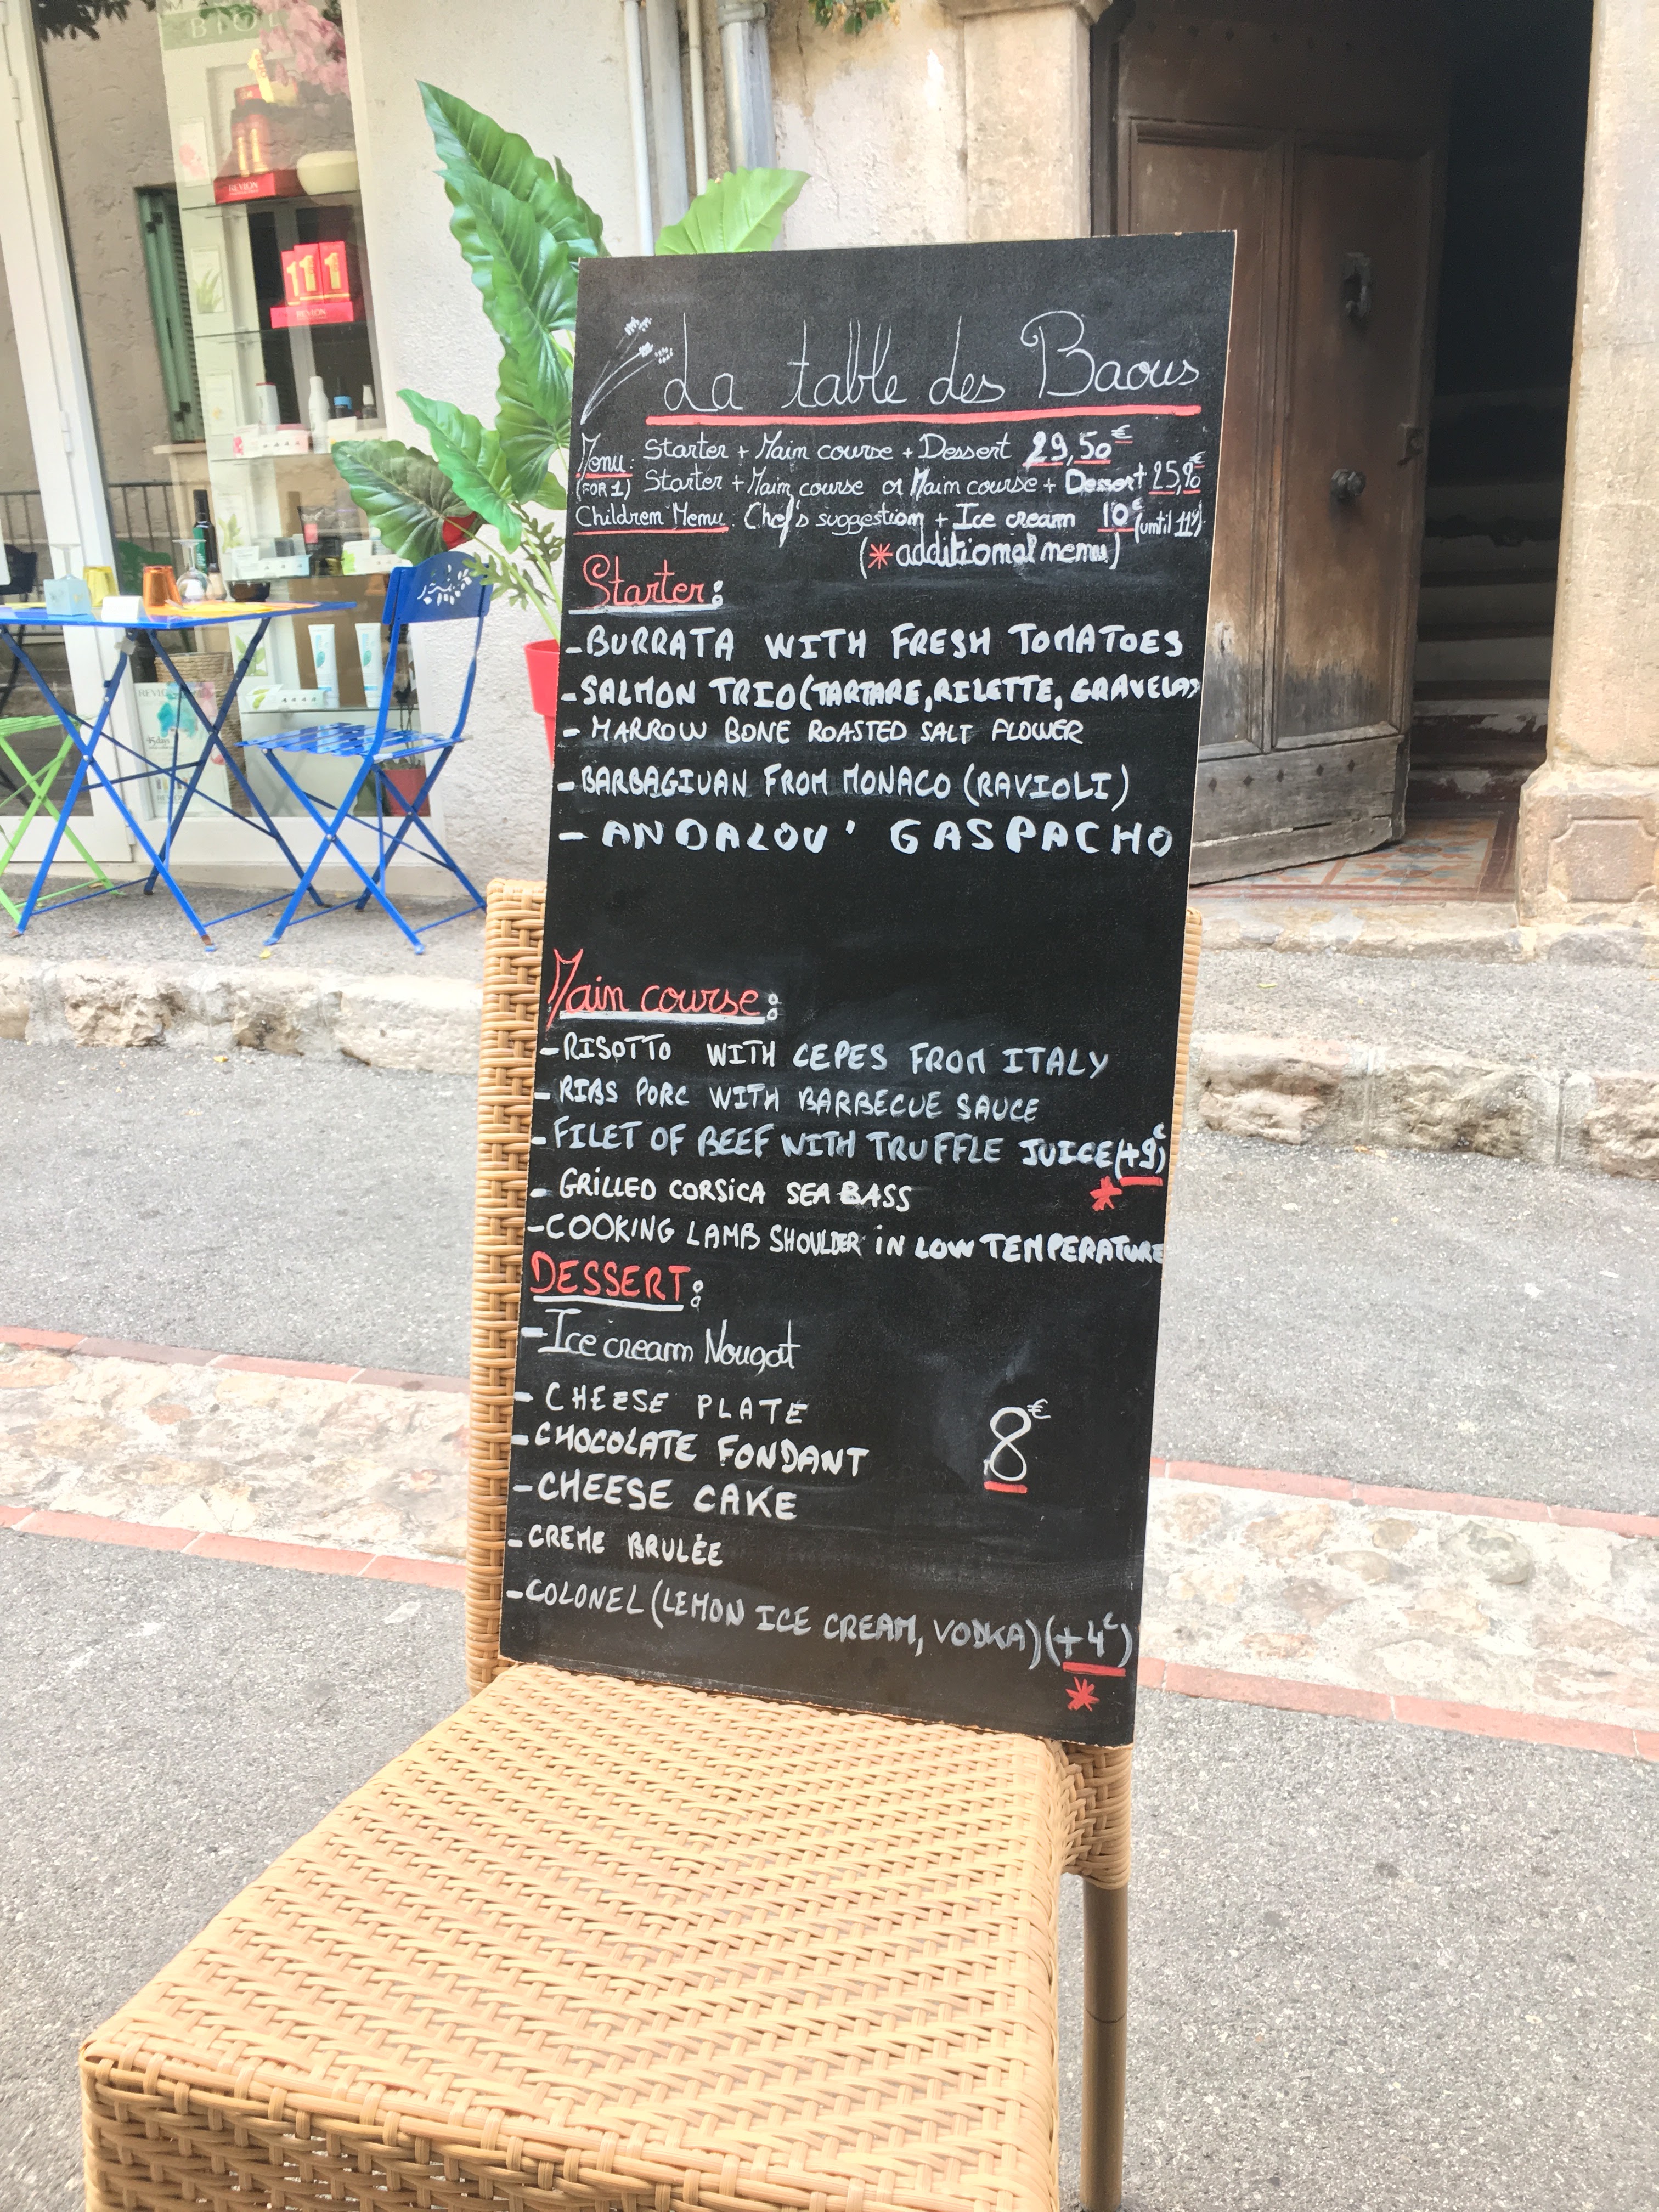 BIO
REVLON
111
REVLON
REVLON
La table des Baous
Menu: Starter + Main course + Dessert 29,50€
(FOR 1) Starter + Main course or Main course + Dessert 25,90€
Children Menu: Chef's suggestion + Ice cream 10€ (until 11y)
(* additional menu)
Starter:
- BURRATA WITH FRESH TOMATOES
- SALMON TRIO (TARTARE, RILETTE, GRAVELAX
- MARROW BONE ROASTED SALT FLOWER
- BARBAGIUAN FROM MONACO (RAVIOLI)
- ANDALOU' GASPACHO
Main course:
- RISOTTO WITH CEPES FROM ITALY
- RIBS PORC WITH BARBECUE SAUCE
- FILET OF BEEF WITH TRUFFLE JUICE (+9€)
*
- GRILLED CORSICA SEA BASS
- COOKING LAMB SHOULDER IN LOW TEMPERATURE
DESSERT:
- Ice cream Nougat
- CHEESE PLATE
- CHOCOLATE FONDANT 8€
- CHEESE CAKE
- CREME BRULÉE
- COLONEL (LEMON ICE CREAM, VODKA) (+4€)
*